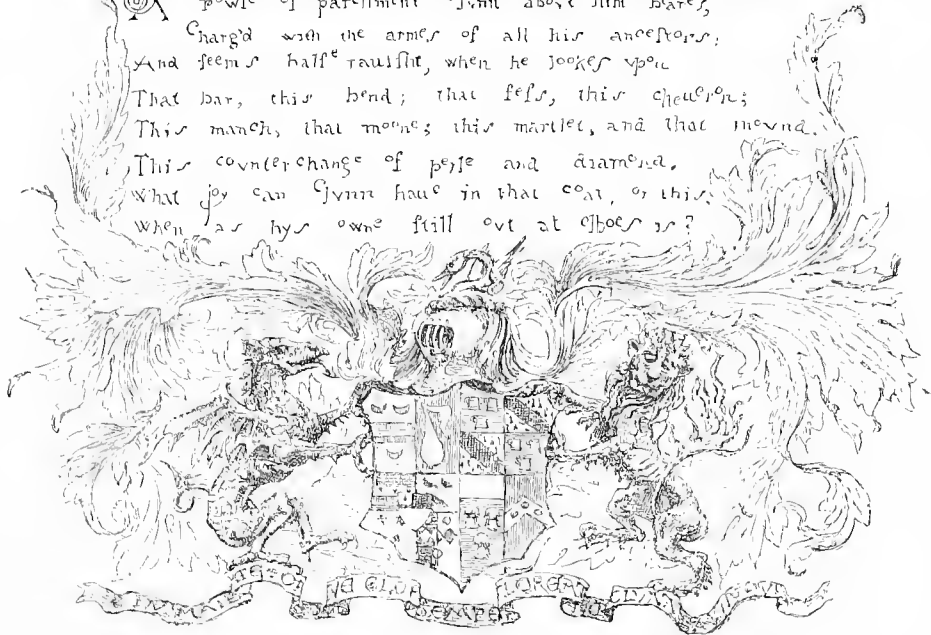 A Rowle of parchment Clvnn abovt him beares,
Charg'd with the armes of all his ancestors:
And seems halfe rauisht, when he lookes vpon
That bar, this bend; that fess, this cheueron;
This manch, that moone; this martlet, and that mownd.
This counterchange of perle and diamond.
What joy can Clvnn haue in that coat, or this,
When as hys owne still ovt at elboes is?
SEMPER